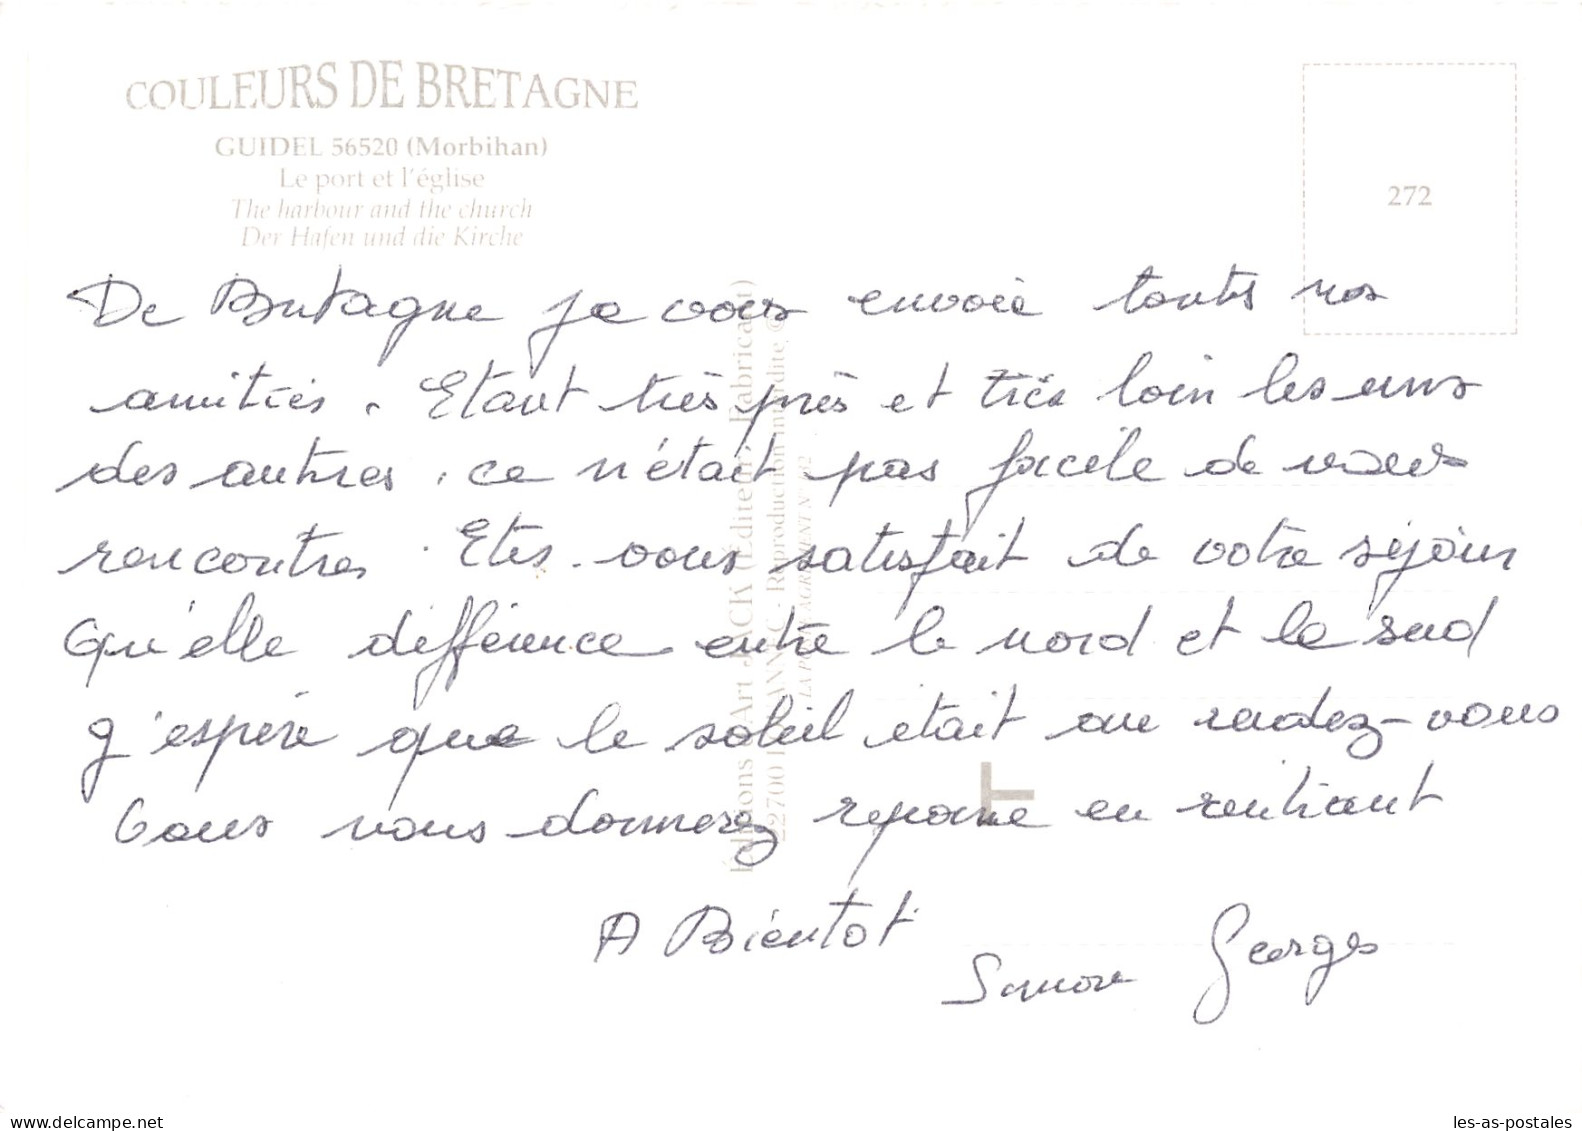 COULEURS DE BRETAGNE
GUIDEL 56520 (Morbihan)
Le port et l'église
The harbour and the church
Der Hafen und die Kirche
272
De Bretagne je vous envoie toutes nos
amitiés. Etant très près et très loin les uns
des autres, ce n'était pas facile de nous
rencontrer. Etes-vous satisfait de votre séjour
Qu'elle différence entre le nord et le sud
J'espère que le soleil était au rendez-vous
Vous nous donnerez reponse en rentrant
A Bientot
Simone Georges
Éditions d'Art JACK (Éditeur - Fabricant)
Reproduction interdite ©
les-as-postales